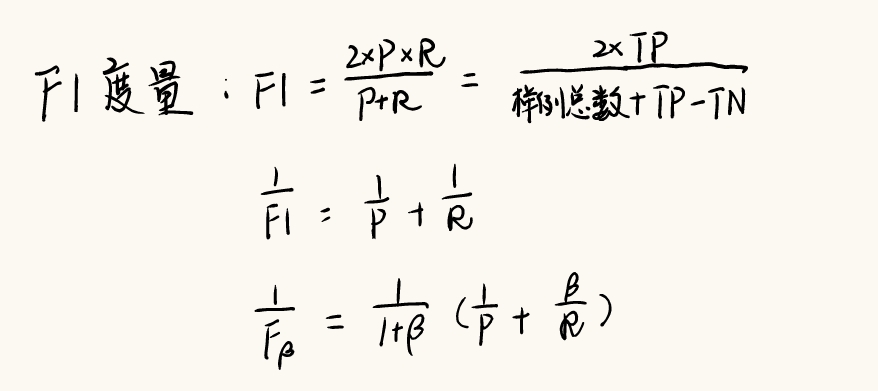 F1度量：F1 = 2×P×R / P+R = 2×TP / 样例总数+TP-TN
1/F1 = 1/P + 1/R
1/Fβ = 1/1+β (1/P + β/R)